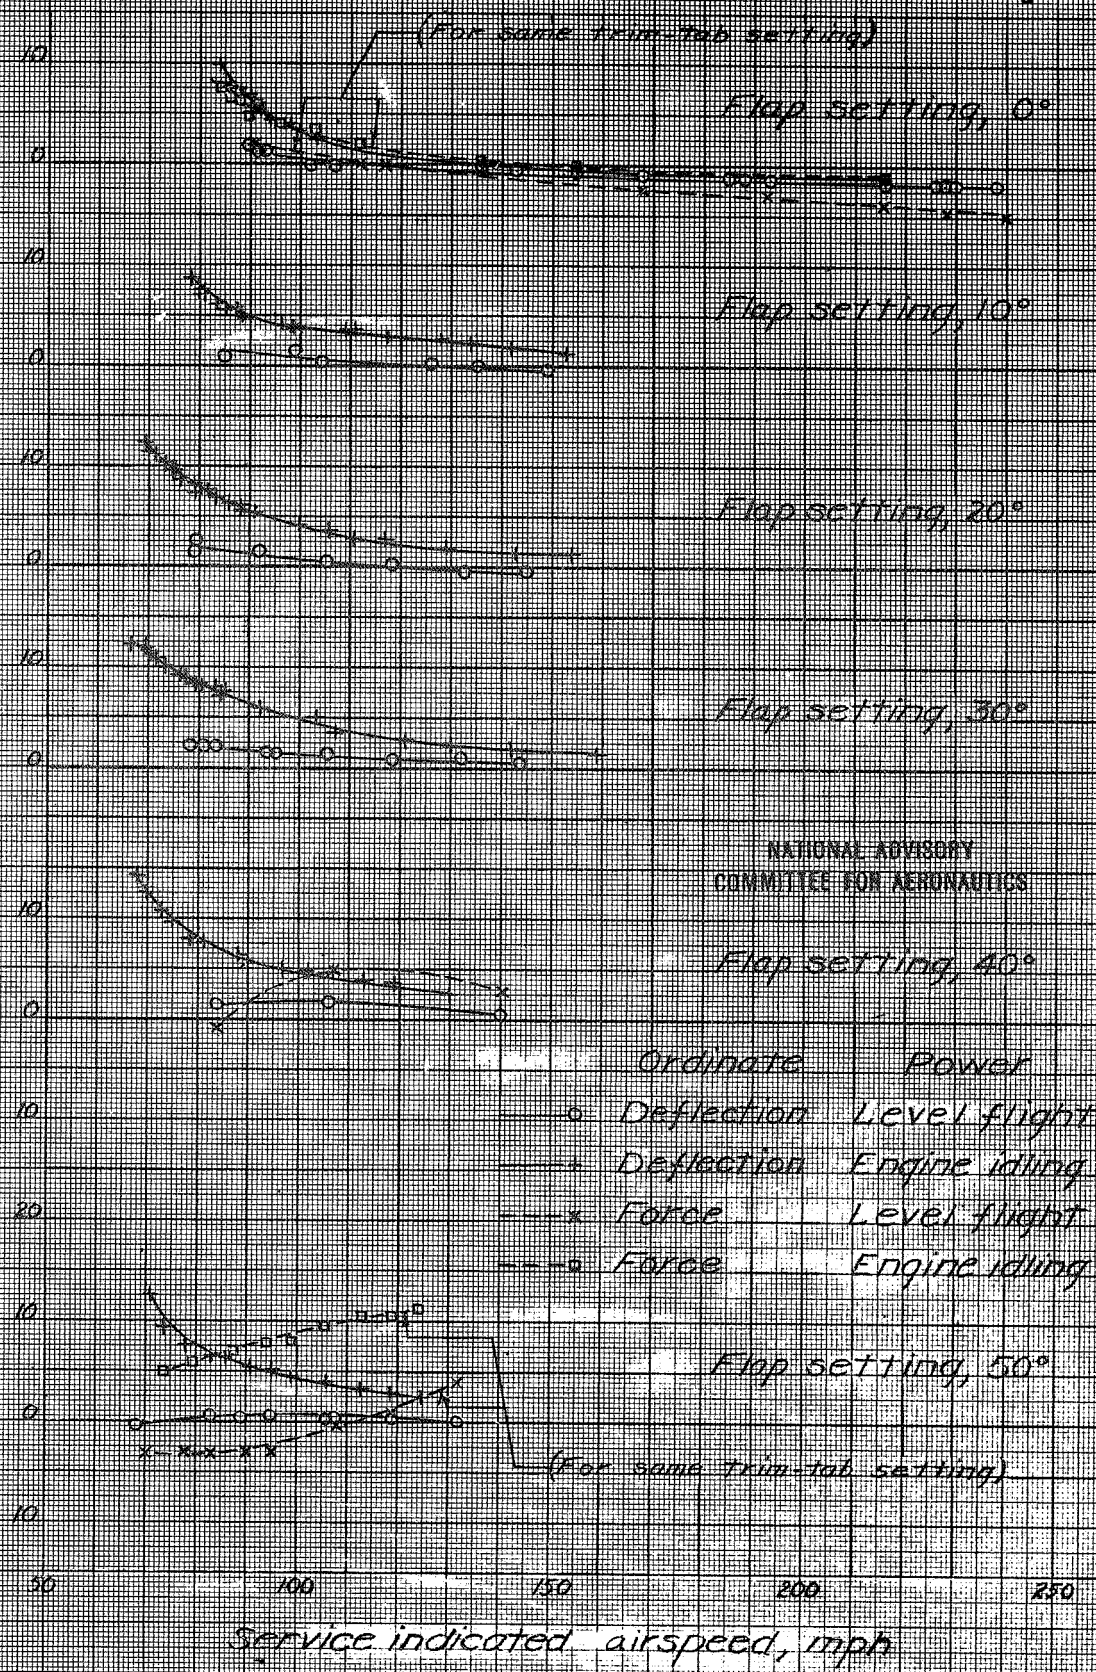 (For same trim-tab setting)
10
Flap setting, 0°
0
10
Flap setting, 10°
0
10
Flap setting, 20°
0
10
Flap setting, 30°
0
NATIONAL ADVISORY
COMMITTEE FOR AERONAUTICS
10
Flap setting, 40°
0
Ordinate Power
10
Deflection Level flight
Deflection Engine idling
20
Force Level flight
Force Engine idling
10
Flap setting, 50°
0
(For same trim-tab setting)
10
50 100 150 200 250
Service indicated airspeed, mph